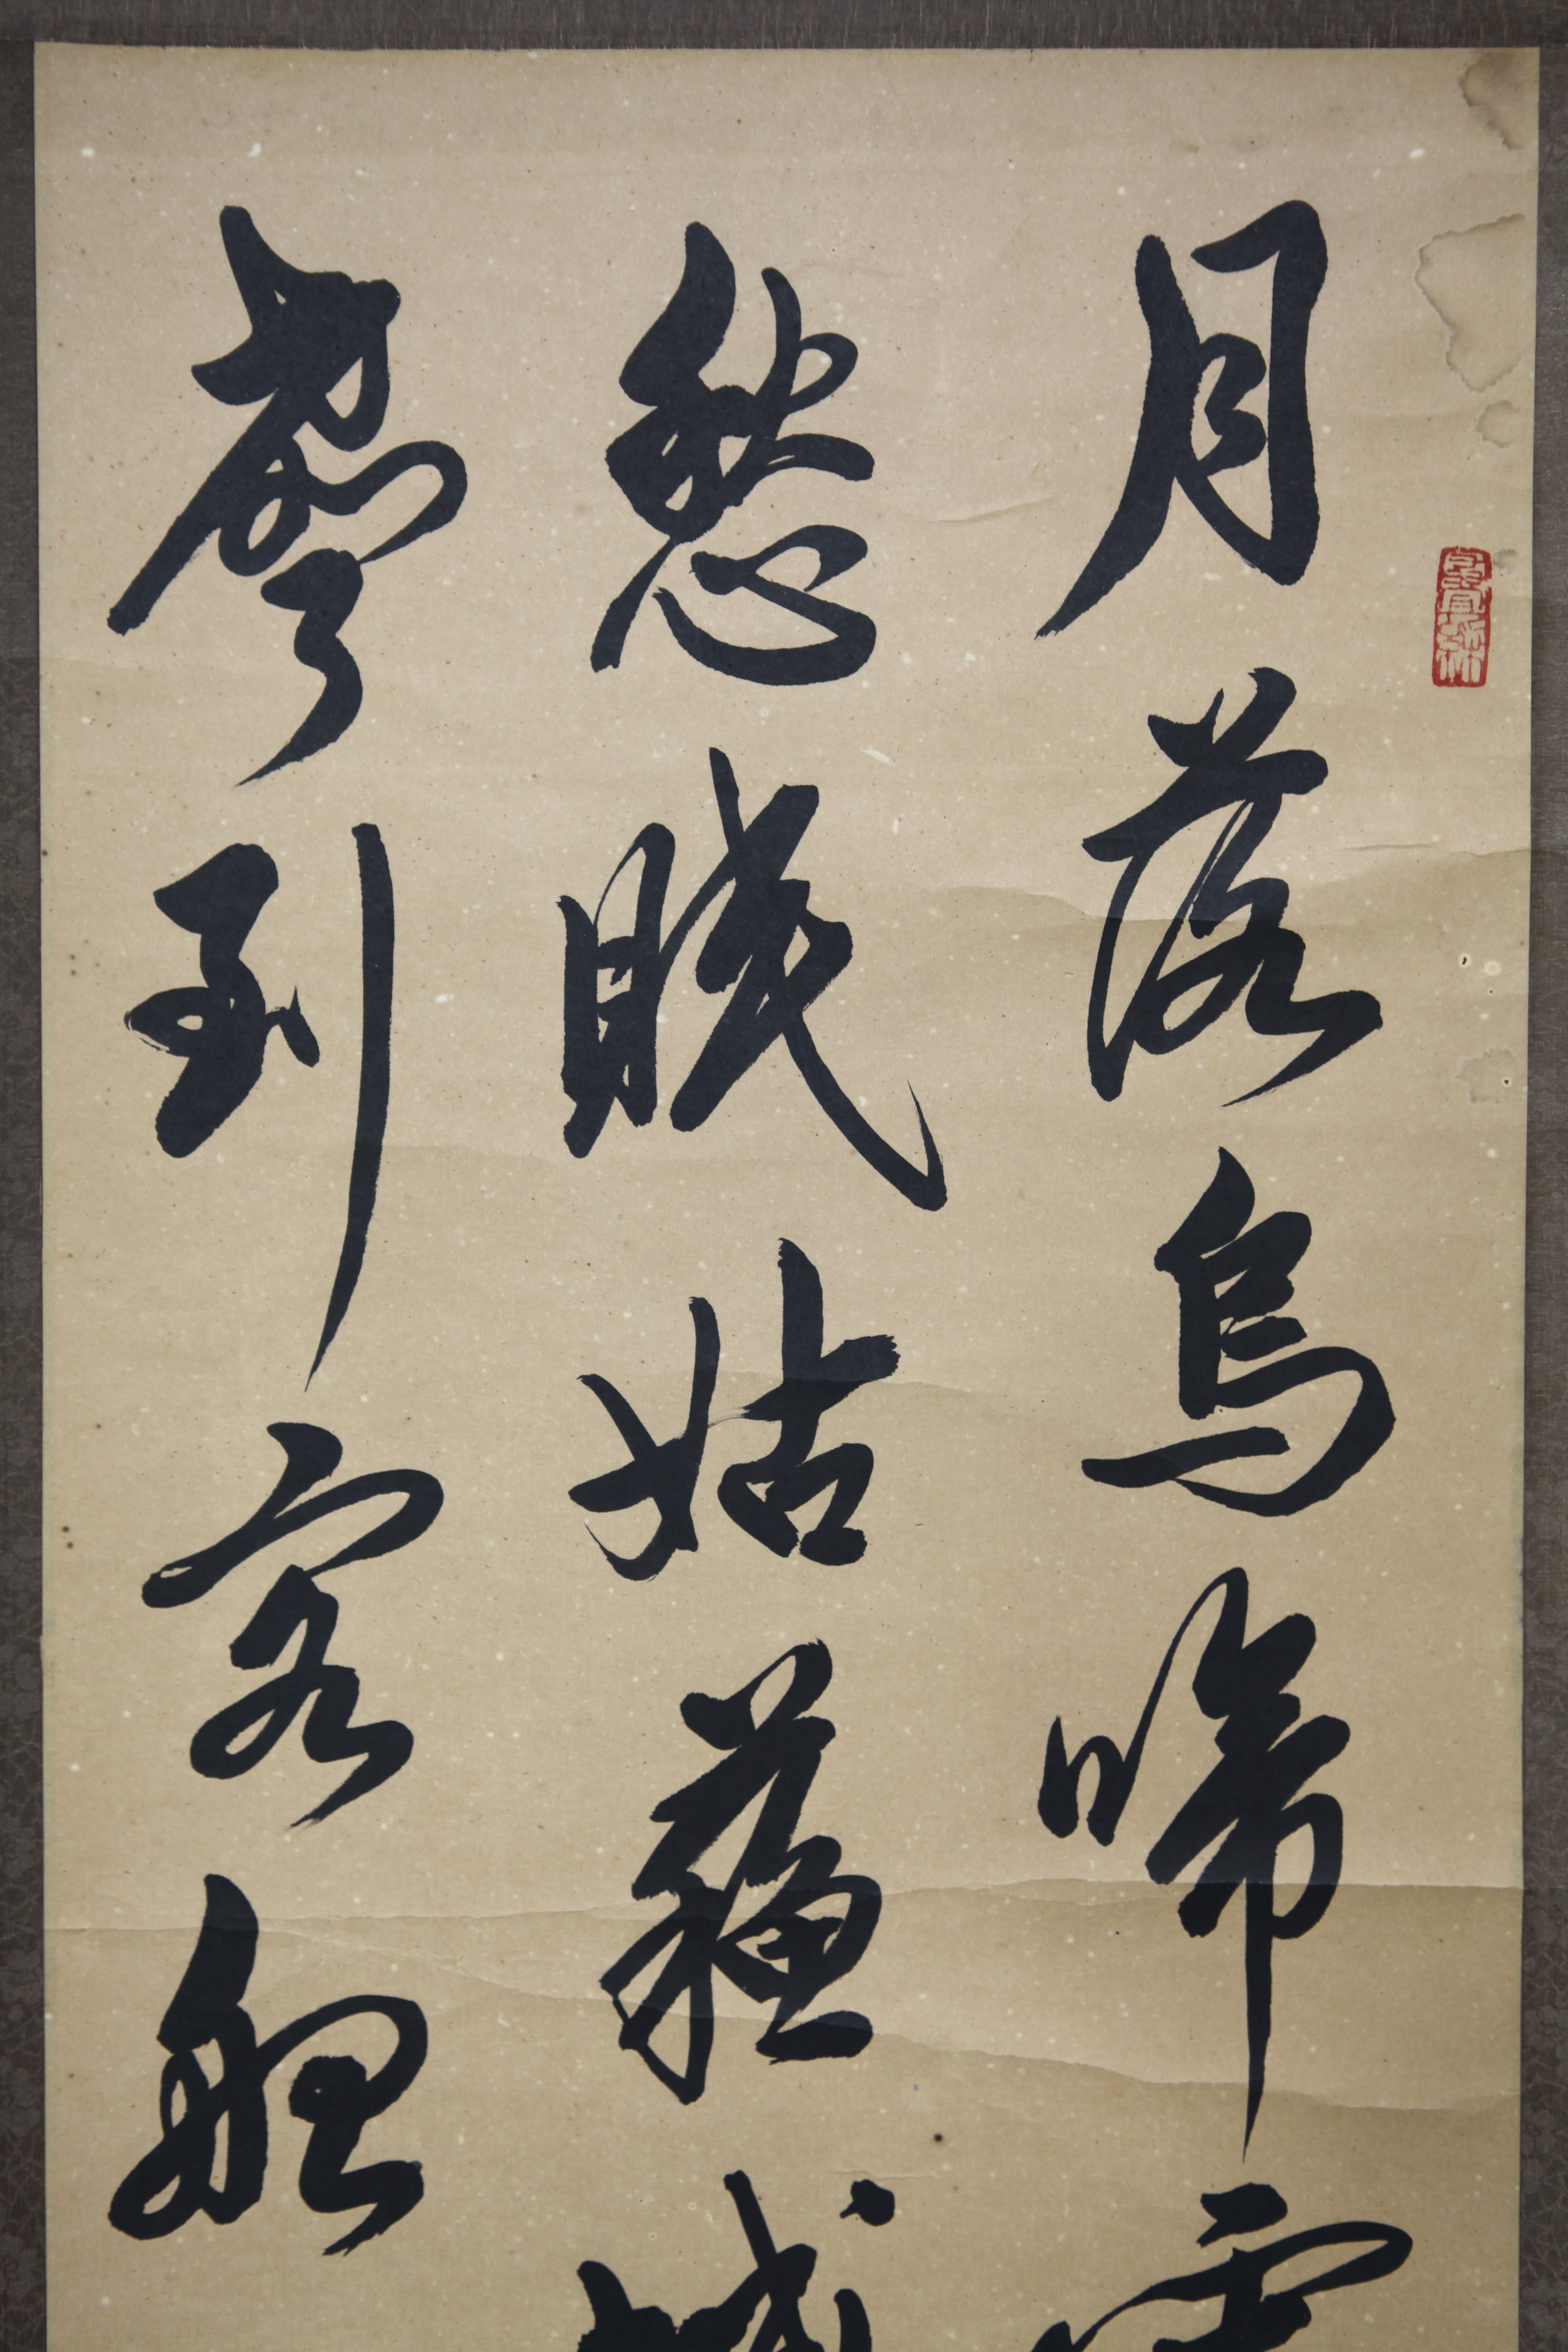 月落烏啼
愁眠姑蘓
聲到客船